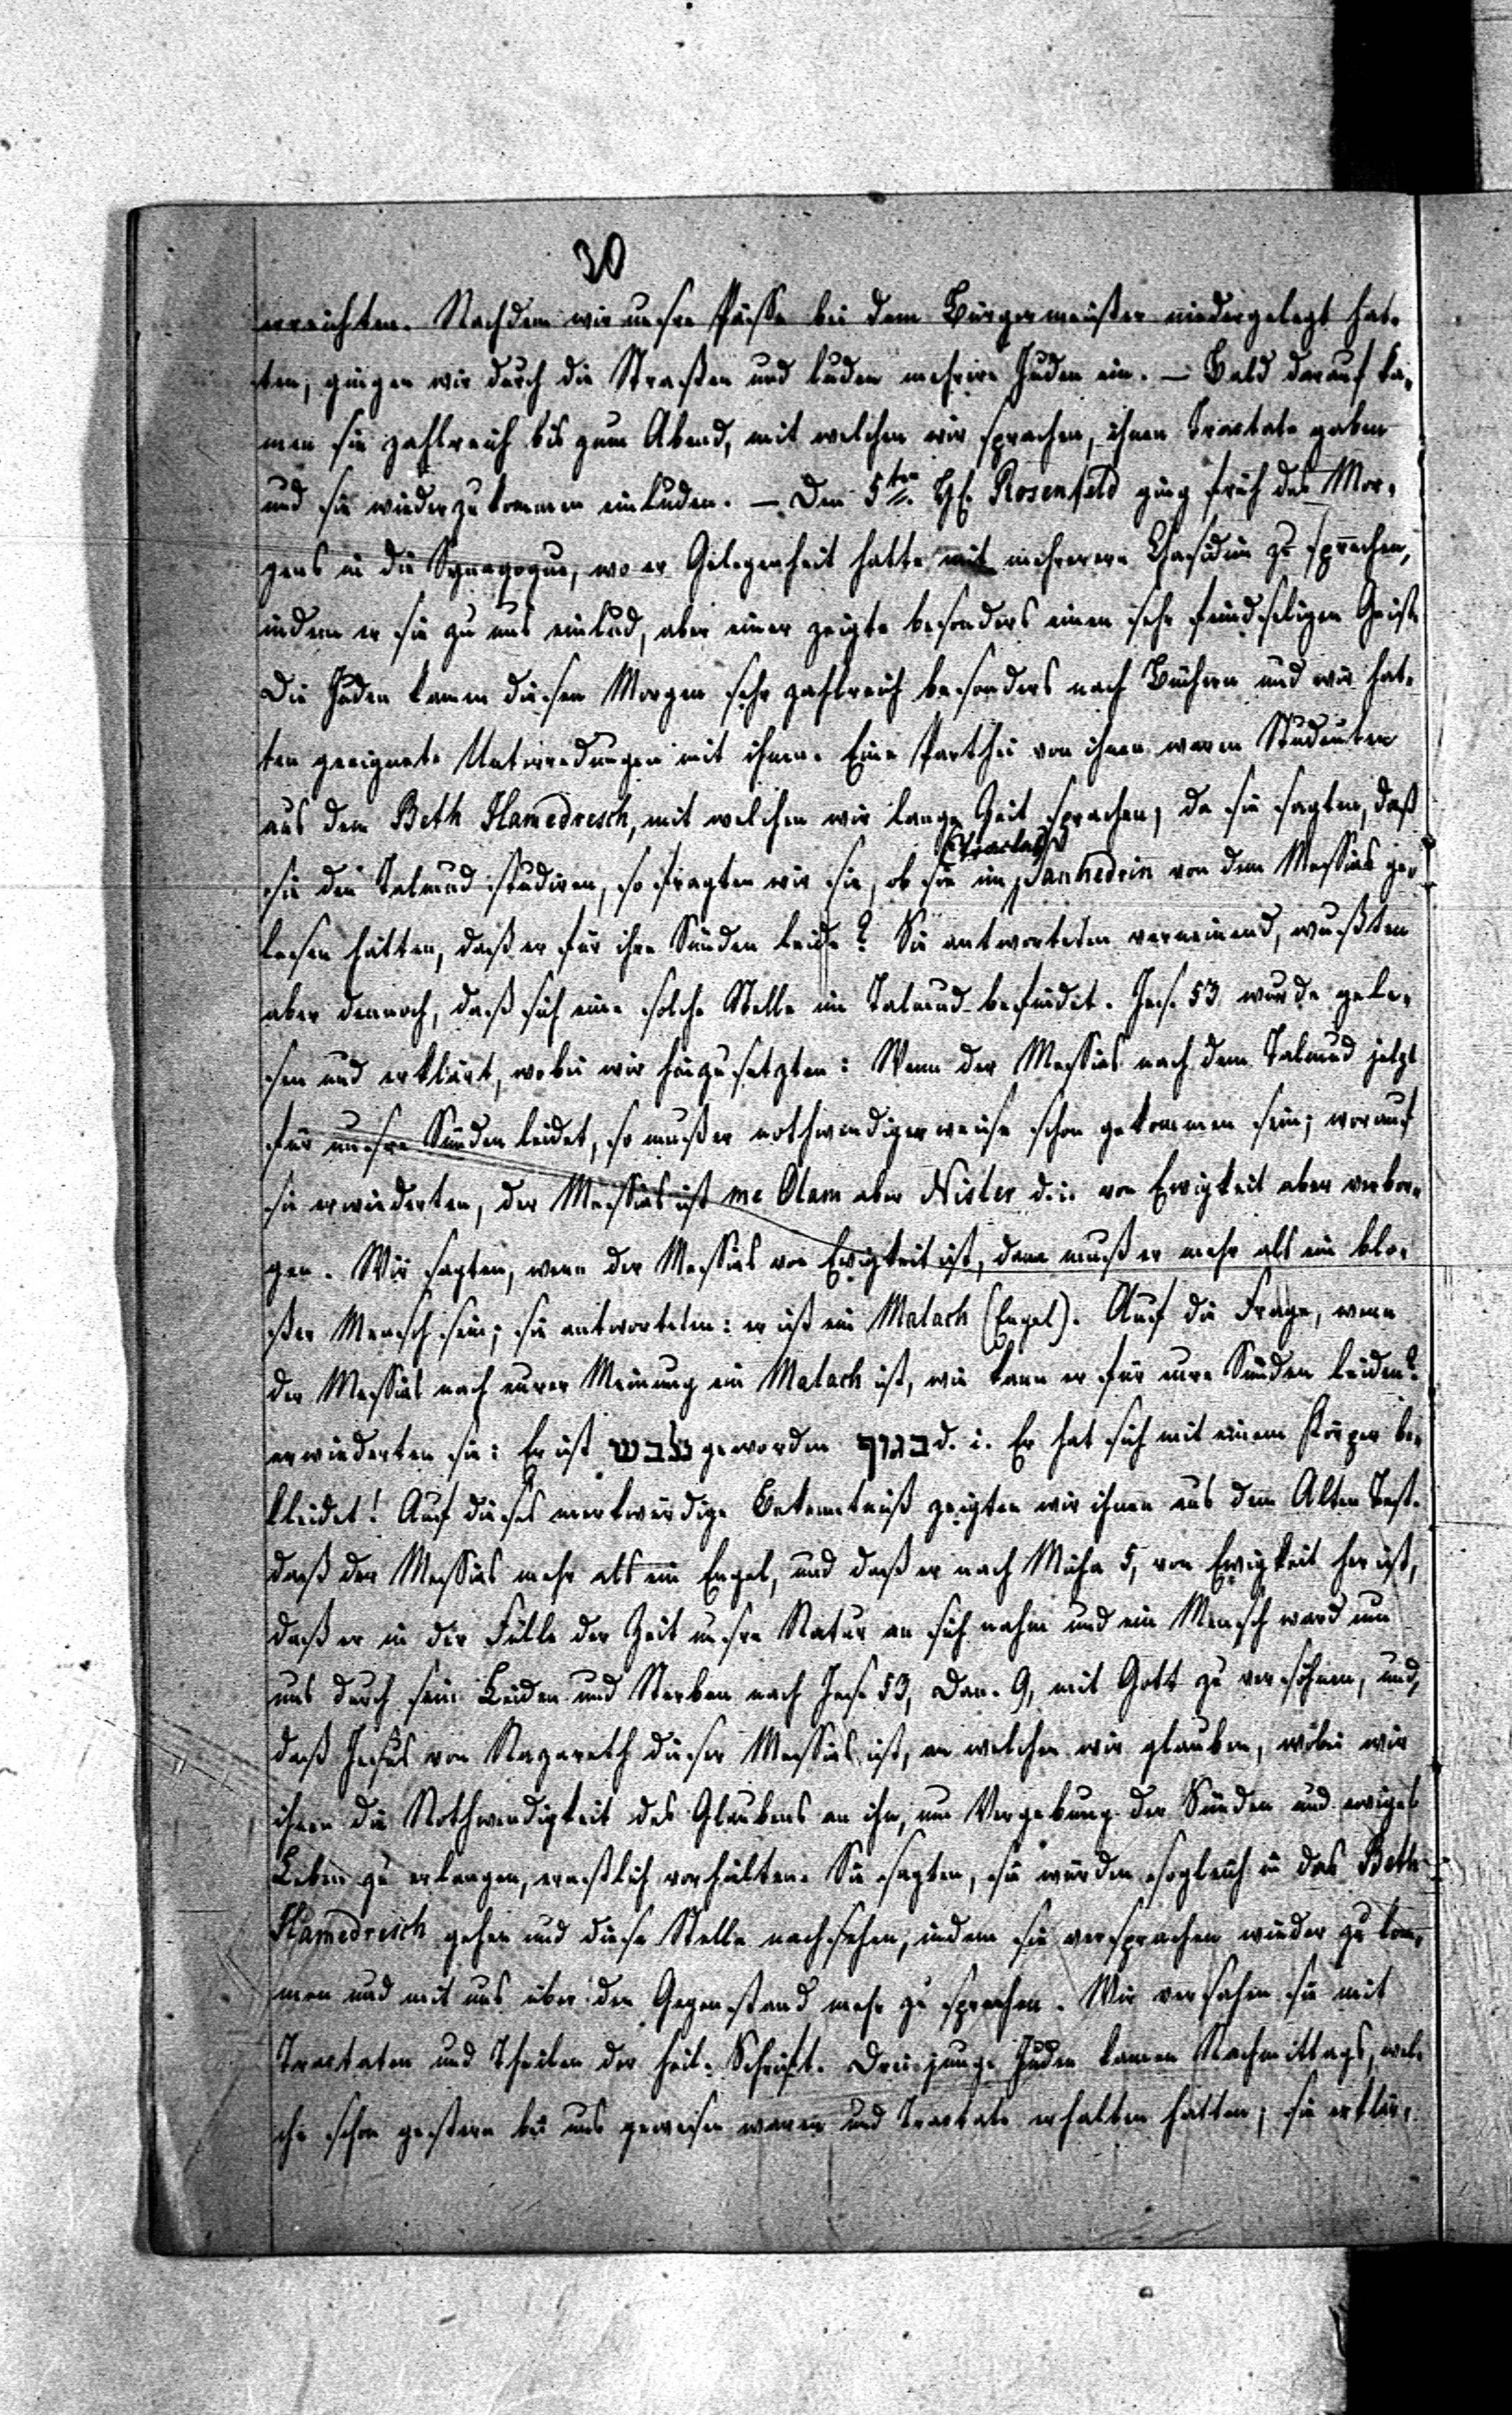 30
erreichten. Nachdem wir unsre Pässe bei dem Bürgermeister niedergelegt hat-
ten, gingen wir durch die Straßen und luden mehrere Juden ein. – Bald darauf ka-
men sie zahlreich bis zum Abend, mit welchen wir sprachen, ihnen Tractate gaben
und sie wiederzukommen einluden. – Den 5ten. H. Rosenfeld ging früh des Mor-
gens in die Synagogue, wo er Gelegenheit hatte mit mehreren Chasidim zu sprechen,
indem er sie zu uns einlud, aber einer zeigte besonders einen sehr feindseligen Geist.
Die Juden kamen diesen Morgen sehr zahlreich besonders nach Büchern und wir hat-
ten geeignete Unterredungen mit ihnen. Eine Parthei von ihnen waren Studenten
aus dem Beth Hamedresch, mit welchen wir lange Zeit sprachen, da sie sagten, daß
(Tractat)
sie den Talmud studiren, so fragten wir sie, ob sie im Sanhedrin von dem Messias ge-
lesen hätten, daß er für ihre Sünden leide? Sie antworteten verneinend, wußten
aber dennoch, daß sich eine solche Stelle im Talmud befindet. Jes. 53 wurde gele-
sen und erklärt, wobei wir hinzusetzten: Wenn der Messias nach dem Talmud jetzt
für unsre Sünden leidet, so muß er nothwendigerweise schon gekommen sein; worauf
sie erwiederten, der Messias ist me Olam aber Nister d.i. von Ewigkeit aber verbor-
gen. Wir sagten, wenn der Messias von Ewigkeit ist, dann muß er mehr als ein blo-
ßer Mensch sein; sie antworteten: er ist ein Malach (Engel). Auf die Frage, wenn
der Messias nach eurer Meinung ein Malach ist, wie kann er für eure Sünden leiden?
erwiederten sie: Er ist נלבש geworden בגוף d. i. Er hat sich mit einem Körper be-
kleidet! Auf dieses merkwürdige Bekenntniß zeigten wir ihnen aus dem Alten Test.
daß der Messias mehr als ein Engel, und daß er nach Micha 5, von Ewigkeit her ist,
daß er in der Fülle der Zeit unsre Natur an sich nahm und ein Mensch ward um
uns durch sein Leiden und Sterben nach Jes. 53, Dan. 9, mit Gott zu versöhnen, und,
daß Jesus von Nazareth dieser Messias ist, an welchen wir glauben, wobei wir
ihnen die Nothwendigkeit des Glaubens an ihn, um Vergebung der Sünden und ewiges
Leben zu erlangen, ernstlich vorhielten. Sie sagten, sie würden sogleich in das Beth
Hamedresch gehen und diese Stelle nachsehen, indem sie versprachen wieder zu kom-
men und mit uns über den Gegenstand mehr zu sprechen. Wir versahen sie mit
Tractaten und Theilen der heil. Schrift. Drei junge Juden kamen Nachmittags, wel-
che schon gestern bei uns gewesen waren und Tractate erhalten hatten; sie erklär-